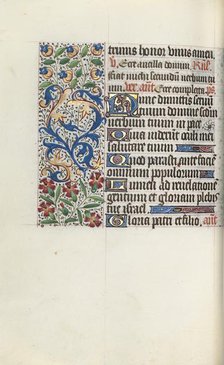 trinus honor unus amen
V Ecce ancilla domini Res
fiat michi secundum verbum tu
um ant Ecce completa ps
Nunc dimittis servum
tuum domine secun
verbum tuum in pace
Quia viderunt oculi mei
salutare tuum
Quod parasti ante faciē
omnium populorum
Lumen ad revelationē
gentium et gloriam plebis
tue israel
Gloria patri et filio ant